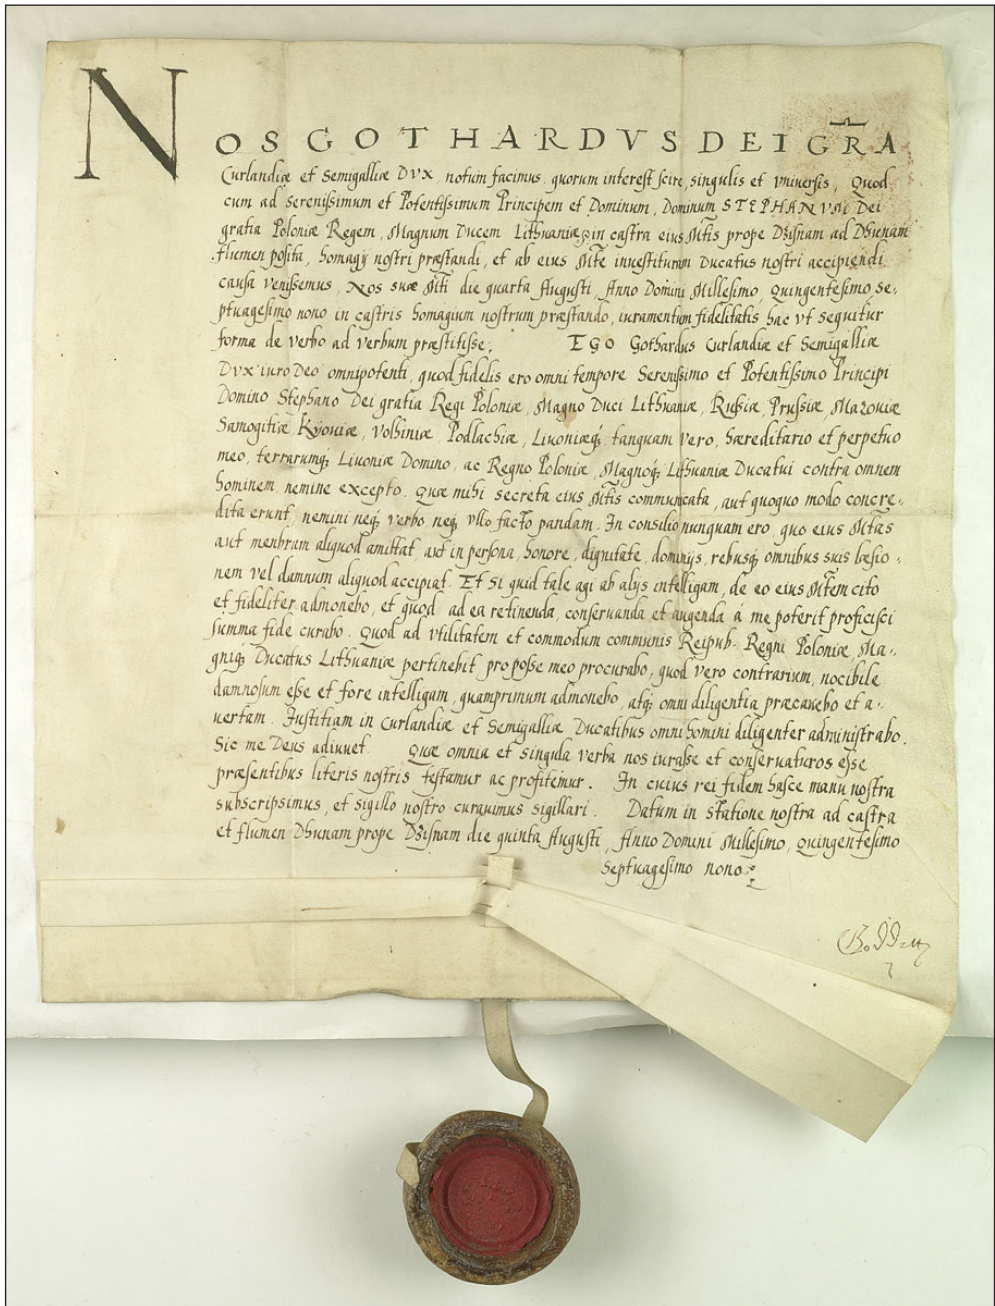 NOS GOTHARDVS DEI GRA
Curlandiæ et Semigalliæ DVX, notum facimus, quorum interest scire, singulis et vniuersis, Quod
cum ad Serenissimum et Potentissimum Principem et Dominum, Dominum STEPHANVM Dei
gratia Poloniæ Regem, Magnum Ducem Lithuaniæ, in castra eius Mtis prope Dzisnam ad Dhuenam
flumen posita, homagij nostri præstandi, et ab eius Mte inuestituram Ducatus nostri accipiendi
causa venissemus, Nos suæ Mti die quarta Augusti, Anno Domini Millesimo, Quingentesimo, Se-
ptuagesimo nono in castris homagium nostrum præstando, iuramentum fidelitatis hac vt sequitur
forma de verbo ad verbum præstitisse. EGO Gothardus Curlandiæ et Semigalliæ
DVX iuro Deo omnipotenti, quod fidelis ero omni tempore Serenissimo et Potentissimo Principi
Domino Stephano Dei gratia Regi Poloniæ, Magno Duci Lithuaniæ, Russiæ, Prussiæ, Mazouiæ
Samogitiæ Kyouiæ, Volhiniæ Podlachiæ, Liuoniæq; tanquam vero, hæreditario et perpetuo
meo, terrarumq; Liuoniæ Domino, ac Regno Poloniæ, Magnoq; Lithuaniæ Ducatui contra omnem
hominem nemine excepto. Quæ mihi secreta eius Mtis communicata, aut quoquo modo concre-
dita erunt, nemini neq; verbo, neq; vllo facto pandam. In consilio nunquam ero, quo eius Mtas
aut menbram aliquod amittat, aut in persona, honore, dignitate, dominijs, rebusq; omnibus suis læsio-
nem vel damnum aliquod accipiat. Et si quid tale agi ab alys intelligam, de eo eius Mtem cito
et fideliter admonebo, et quod ad ea retinenda, conseruanda et augenda á me poterit proficisci
summa fide curabo. Quod ad vtilitatem et commodum communis Reipub. Regni Poloniæ, Ma-
gniq; Ducatus Lithuaniæ pertinebit, pro posse meo procurabo, quod vero contrarium, nocibile
damnosum esse et fore intelligam, quamprimum admonebo, atq; omni diligentia præcauebo et a-
uertam. Justitiam in Curlandiæ et Semigalliæ Ducatibus omni homini diligenter administrabo.
Sic me Deus adiuuet. Quæ omnia et singula verba nos iurasse et conseruaturos esse
præsentibus literis nostris testamur ac profitemur. In cuius rei fidem hasce manu nostra
subscripsimus, et sigillo nostro curauimus sigillari. Datum in statione nostra ad castra
et flumen Dhuenam prope Dzisnam die quinta Augusti, Anno Domini Millesimo, Quingentesimo
Septuagesimo nono